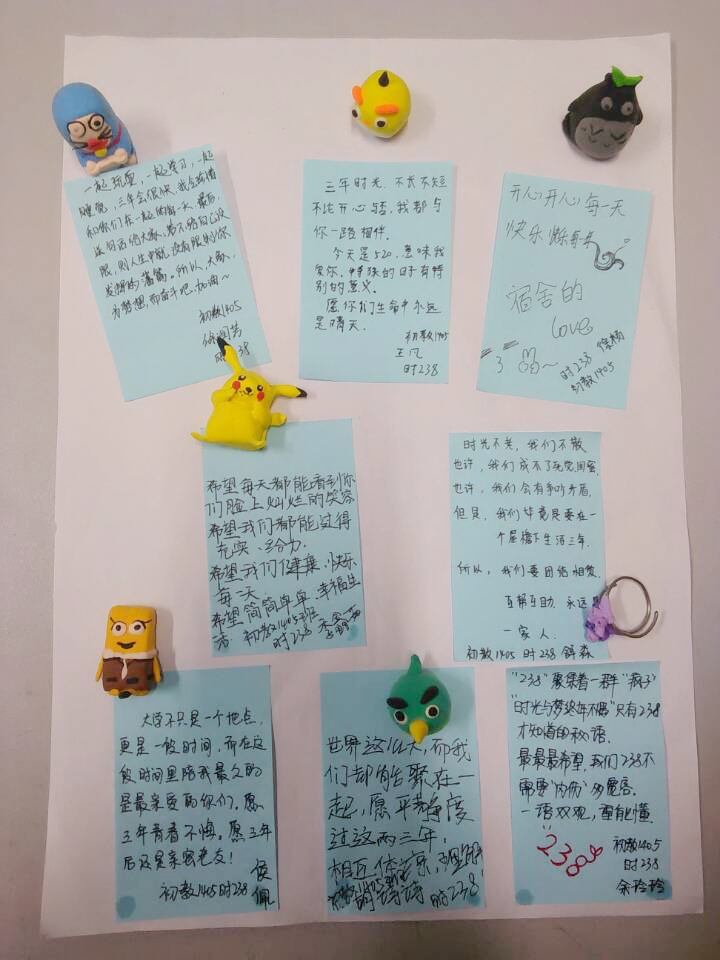 一起玩耍，一起学习，一起
睡觉，三年会很快，我会珍惜
和你们在一起的每一天，最后，
送句话给大家，若不给自己设
限，则人生中就没有限制你
发挥的藩篱。所以，大家，
为梦想而奋斗吧，加油～
初教1405
时238
三年时光，不长不短
不论开心与，我都与
你一路相伴。
今天是520，意味我
爱你，特殊的日子有特
别的意义。
愿你我们生命中永远
是晴天。
初教1405
王凤
时238
开心开心每一天
快乐
宿舍的
love
3
时238 徐杨
初教1405
希望每天都能看到你
们脸上灿烂的笑容
希望我们都能过得
充实、给力。
希望我们健康、快乐
每一天。
希望简简单单，幸福生
活。初教1405班
时238
时光不老，我们不散
也许，我们成不了死党闺蜜，
也许，我们会有争吵矛盾，
但是，我们毕竟是要在一
个屋檐下生活三年，
所以，我们要团结相爱，
互帮互助，永远
一家人。
初教1405 时238
大学不只是一个地点，
更是一段时间，而在这
段时间里陪我最久的
是最亲爱的你们，愿
三年青春不悔。愿三年
后还是亲密老友！
侯
初教1405时238 佩
世界这么大，而我
们却能聚在一
起，愿平静度
过这两三年。
相互体谅，理解
时238
“238”聚集着一群“疯子”
“时光与梦终年不遇”只有238
才知道的秘语。
最最最希望，我们238不
需要“内伤”
一语双观，重能懂
“238”
初教1405
时238
余玲玲